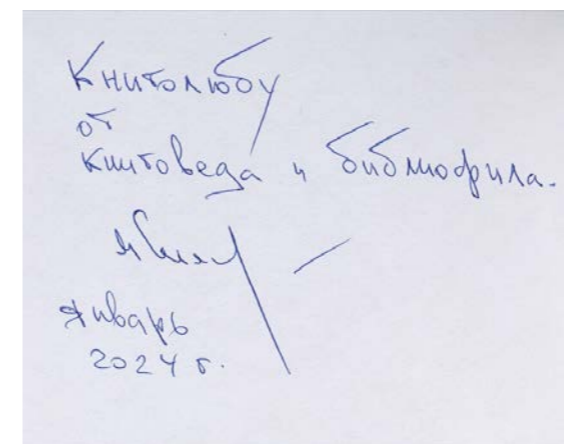 Книголюбу
от
книговеда и библиофила.
январь
2024 г.